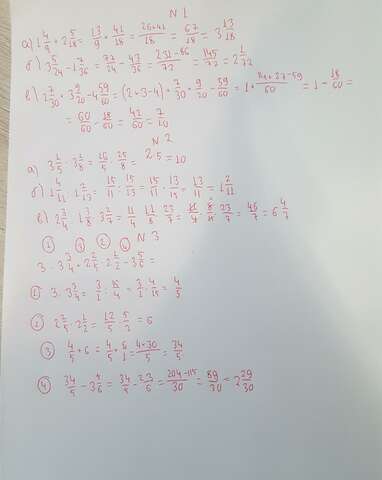 N 1
а) 1 4/9 + 2 5/18 = 13/9 + 41/18 = 26+41/18 = 67/18 = 3 13/18
б) 3 5/24 - 1 7/36 = 77/24 - 43/36 = 231-86/72 = 145/72 = 2 1/72
в) 2 7/30 + 3 9/20 - 4 59/60 = (2+3-4) + 7/30 + 9/20 - 59/60 = 1 + 14+27-59/60 = 1 - 18/60 =
= 60/60 - 18/60 = 42/60 = 7/10
N 2
а) 3 1/5 · 3 1/8 = 16/5 · 25/8 = = 10
б) 1 4/11 : 1 2/13 = 15/11 : 15/13 = 15/11 · 13/15 = 13/11 = 1 2/11
в) 2 3/4 : 1 3/8 · 3 2/7 = 11/4 : 11/8 · 23/7 = 11/4 · 8/11 · 23/7 = 46/7 = 6 4/7
1 3 2 4 N 3
3 : 3 3/4 + 2 2/5 · 2 1/2 - 3 5/6 =
1 3 : 3 3/4 = 3/1 : 15/4 = 3/1 · 4/15 = 4/5
2 2 2/5 · 2 1/2 = 12/5 · 5/2 = 6
3 4/5 + 6 = 4/5 + 6/1 = 4+30/5 = 34/5
4 34/5 - 3 5/6 = 34/5 - 23/6 = 204-115/30 = 89/30 = 2 29/30